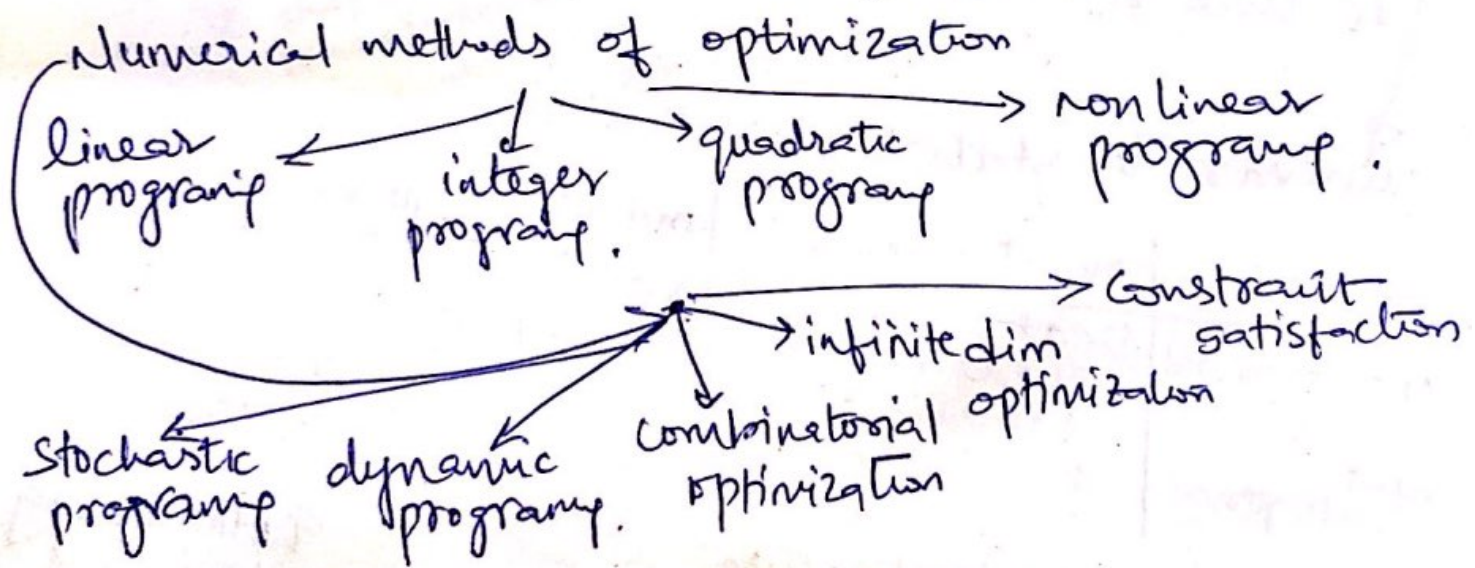 Numerical methods of optimization
linear
programg
integer
programg.
quadratic
programg
non linear
programg.
constraint
satisfaction
infinite dim
optimization
combinatorial
optimization
dynamic
programg.
stochastic
programg